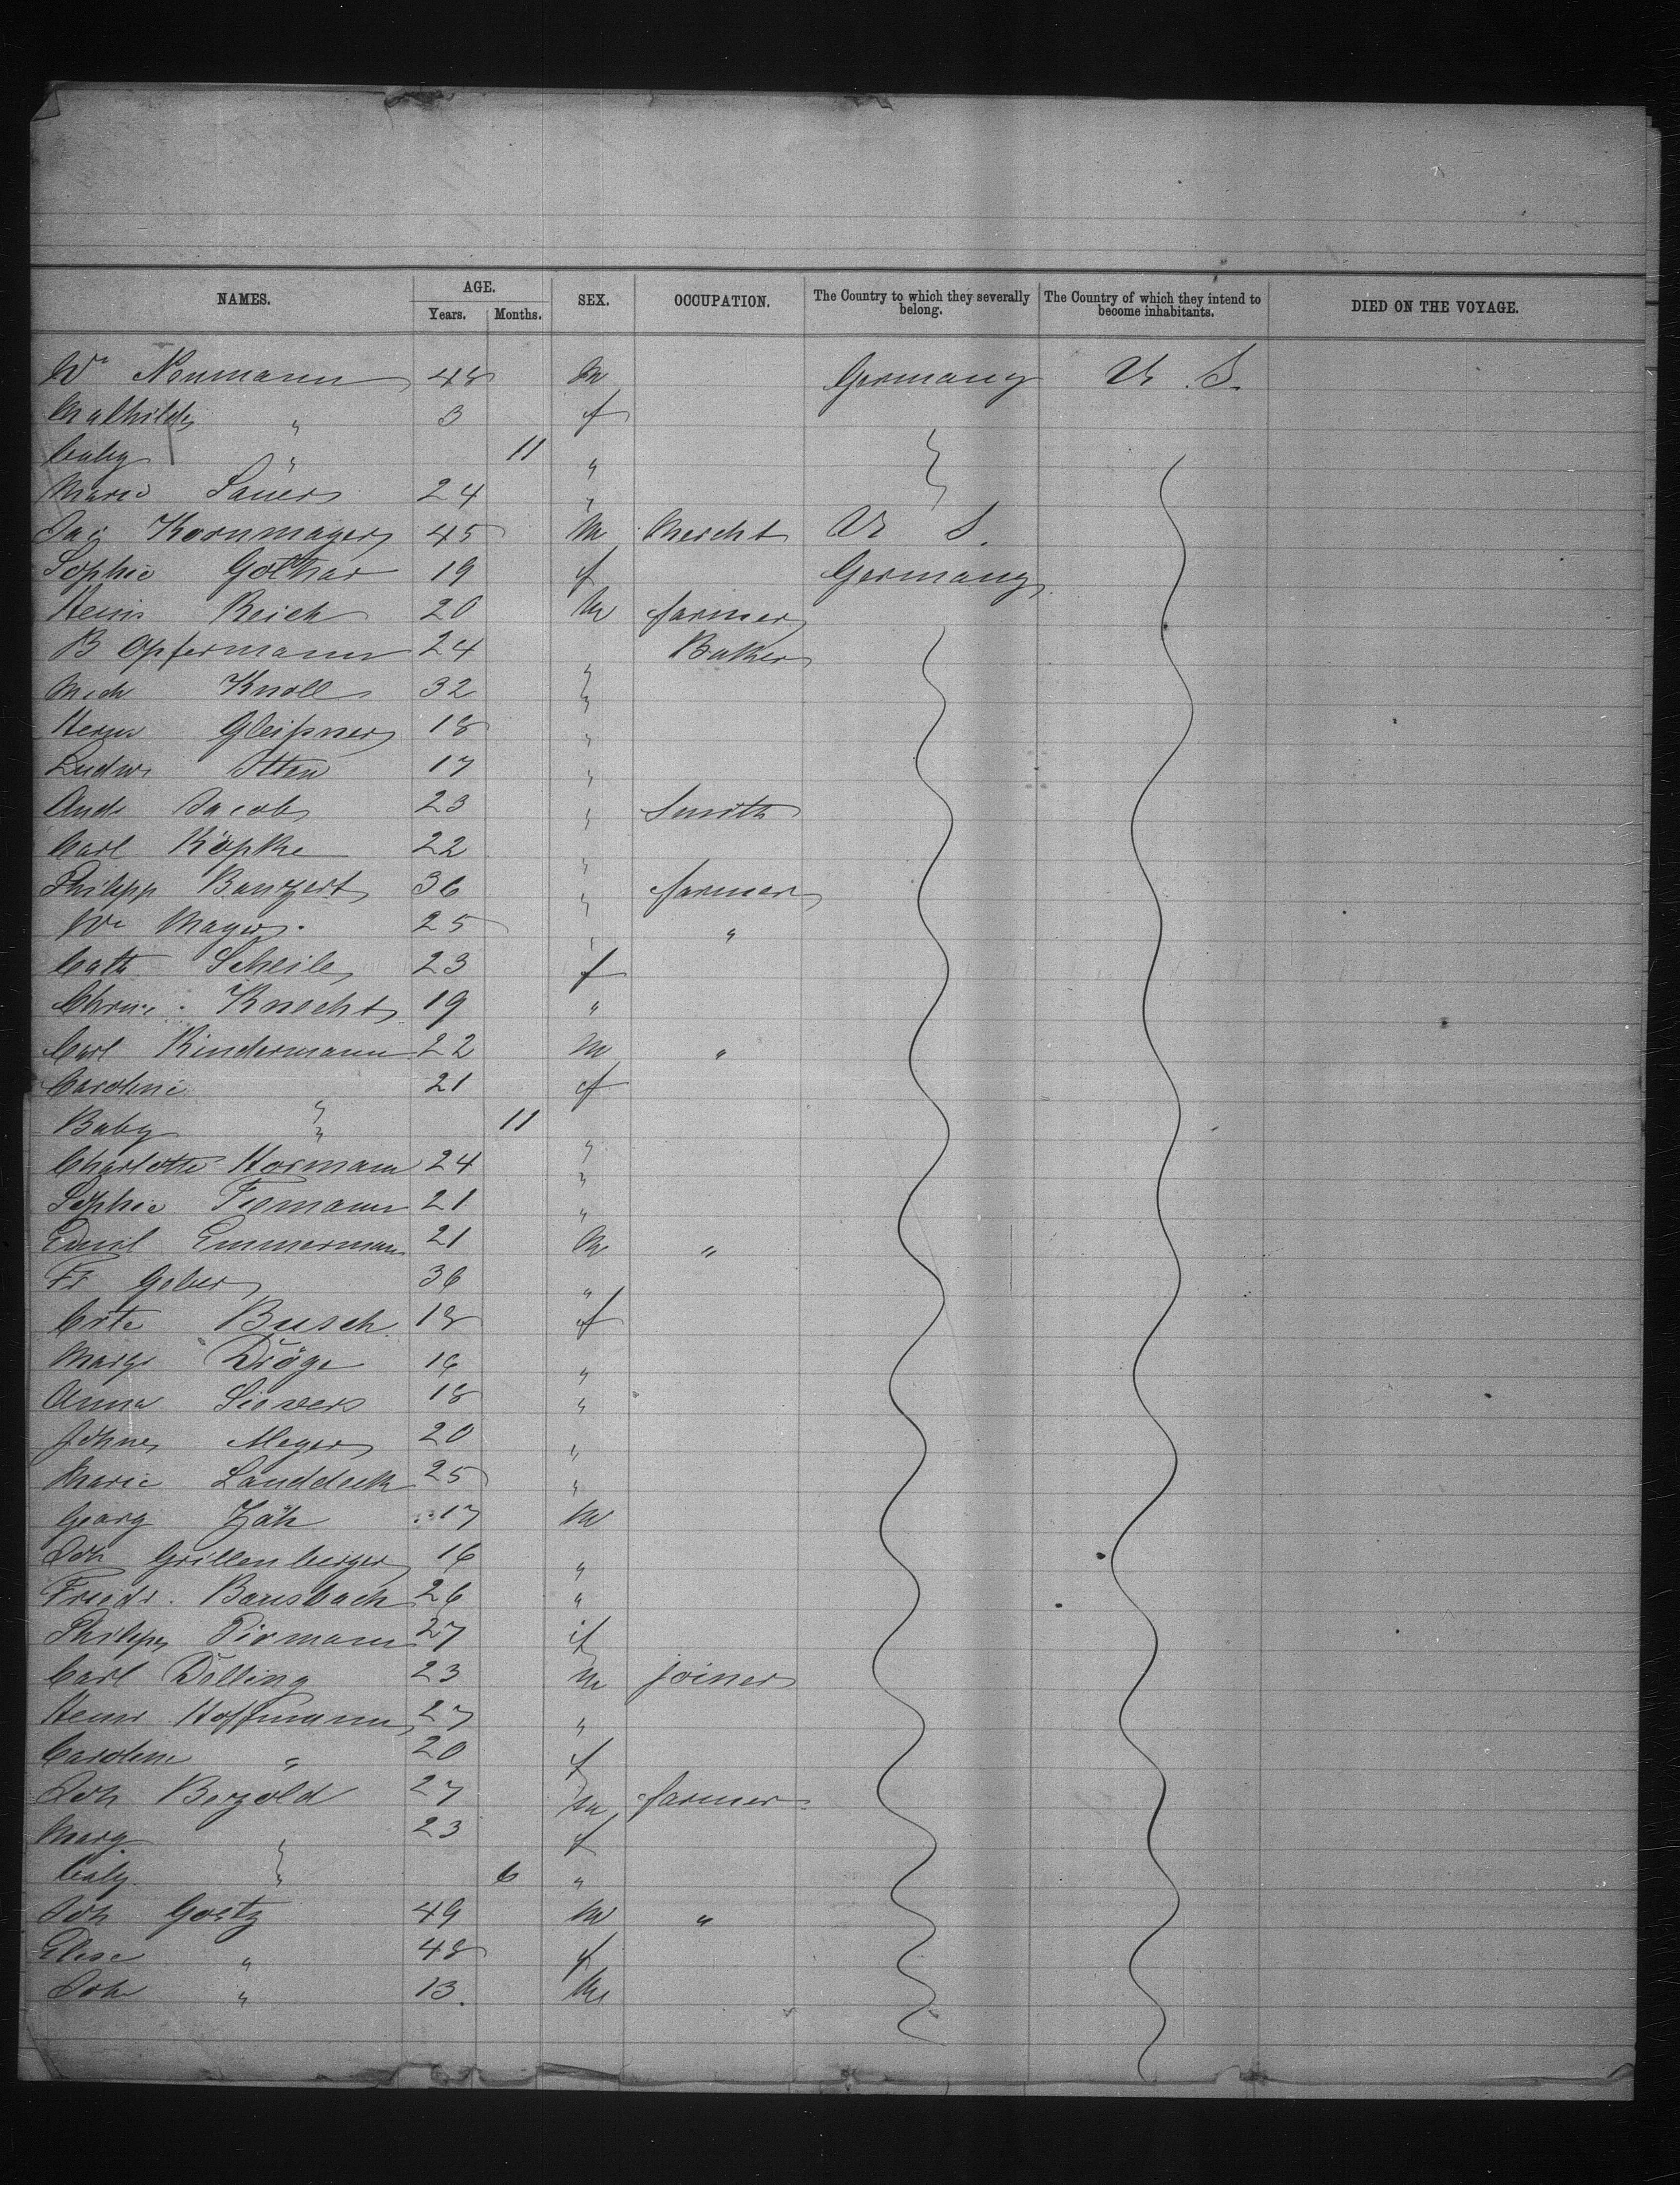 NAMES. AGE. SEX. OCCUPATION. The Country to which they severally belong. The Country of which they intend to become inhabitants. DIED ON THE VOYAGE.
Years. Months.
Wm Neumann 48 m Germany U. S.
Mathilde " 3 f
baby " 11 "
Marie Sauer 24 "
Jac Kornmayer 45 m Mercht U S.
Sophie Gothar 19 f Germany
Heinr Reich 20 m farmer
B Opfermann 24 " Baker
Mich Knoll 32 "
Herm Gleißner 18 "
Ludw Otten 17 "
Andr Jacob 23 " Smith
Carl Köpke 22 "
Philipp Banzert 36 " farmer
Wm Mayer 25 " "
Cath Scheile 23 f
Knecht 19 "
Carl Kindermann 22 m "
Caroline " 21 f
Baby " 11 "
Charlotte Hormann 24 "
Sophie Tiemann 21 "
Emil Emmermann 21 m "
Fr Geber 36 "
Busch 18 f
Margr Dröge 16 "
Anna Sievers 18 "
Meyer 20 "
Marie Landdeck 25 "
Georg Zäh 17 m
Joh Grillenberger 16 "
Friedr. Bausbach 26 "
Philipp Pirmann 27 "
Carl Dölling 23 m joiner
Heinr Hoffmann 27 "
Caroline " 20 f
Joh Bezold 27 m farmer
Marg " 23 f
baby " 6 "
Joh Goetz 49 m "
Elise " 48 f
Joh " 13. m